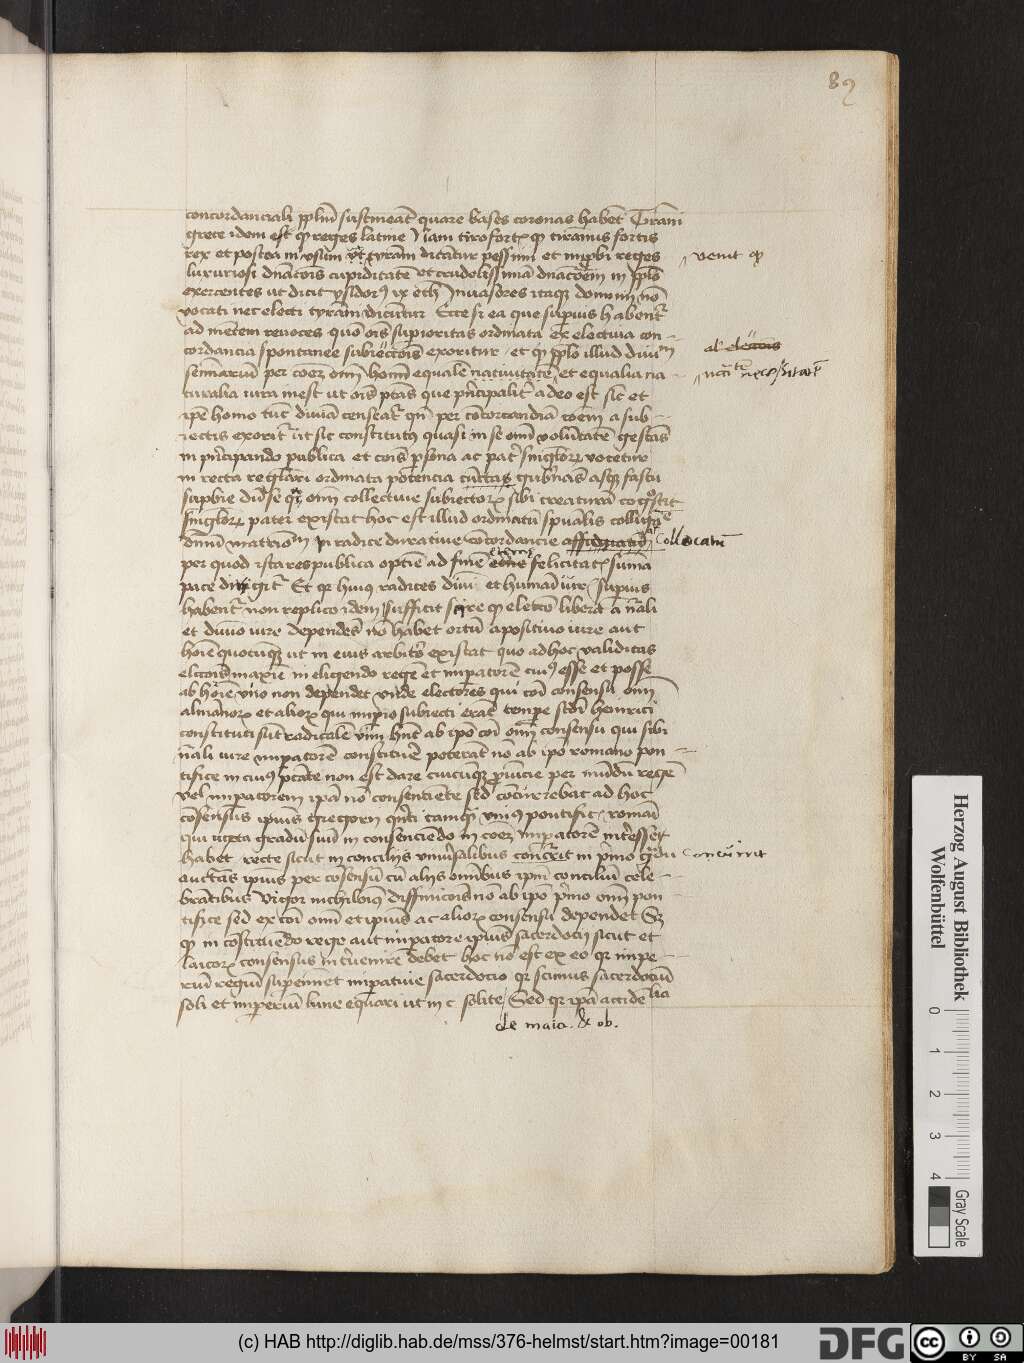 89
concordanciali populum sustineat quare bases coronas habet Tirani
grece idem est quod reges latine Nam tiro fortis quod tirannus fortis
rex et postea in usum tyranni dicantur pessimi et improbi reges
venit quod
luxuriosi dominationis cupiditate et crudelissimam dominationem in populo
exercentes ut dicit ysidorus ix eth Invasores itaque domini non
vocati nec electi tyranni dicuntur Ecce si ea que superius habentur
ad mentem revoces quomodo omnis superioritas ordinata ex electiva con
cordancia spontanee subiectionis exoritur et quod populo illud divinum
al' electionis
seminarium per communem omnium hominum equalem nativitatem et equalia na
necessitatem
turalia iura inest ut omnis potestas que principaliter a deo est sicut et
ipse homo tunc divina censeatur quando per concordanciam communem a sub
iectis exoritur ut sic constitutus quasi in se omnium voluntatem gestans
in principando publica et communis persona ac pater singulorum vocetur
in recta regulari ordinata potencia cunctas gubernans absque fastu
superbie dum se quasi omnium collective subiectorum sibi creaturam cognoscit
singulorum pater existat hoc est illud ordinatum spiritualis colligancie
divinum matrimonium in radice durative concordancie collocatum
per quod ista respublica optime ad finem eterne felicitatis summa
pace dirigitur Et quia huius radices divini et humani iuris superius
habentur non replico idem sufficit scire quod electio libera a naturali
et divino iure dependens non habet ortum a positivo iure aut
homine quocumque ut in eius arbitrio existat quo ad hoc validitas
electionis maxime in eligendo regem et imperatorem cuius esse et posse
ab homine uno non dependet unde electores qui communi consensu omnium
almanorum et aliorum qui imperio subiecti erant tempore secundi heinrici
constituti sunt radicalem vim habent ab ipso communi omnium consensu qui sibi
naturali iure imperatorem constituere poterant non ab ipso romano pon
tifice in cuius potestate non est dare cuicumque provincie per mundum regem
vel imperatorem ipsa non consentiente sed concurrebat ad hoc
consensus ipsius gregorii quinti tamquam unius pontificis romani
qui iuxta gradum suum in consenciendo in communem imperatorem interesse
habet recte sicut in conciliis universalibus concurrit in primo gradu
concurrit
auctoritas ipsius per consensum cum aliis omnibus ipsum concilium cele
brantibus vigor nichilominus diffinicionis non ab ipso primo omnium pon
tifice sed ex communi omnium et ipsius ac aliorum consensu dependet Sed
quod in constituendo rege aut imperatore ipsius sacerdocii sicut et
laicorum consensus intervenire debet hoc non est ex eo quia impe
rium regium superemineret imperative sacerdocio quia scimus sacerdocium
soli et imperium lune equari ut in c solite Sed quia ipsa acciden
talia
de maio. & ob.
Herzog August Bibliothek
Wolfenbüttel
0 1 2 3 4
Gray Scale
(c) HAB http://diglib.hab.de/mss/376-helmst/start.htm?image=00181
DFG
cc BY SA